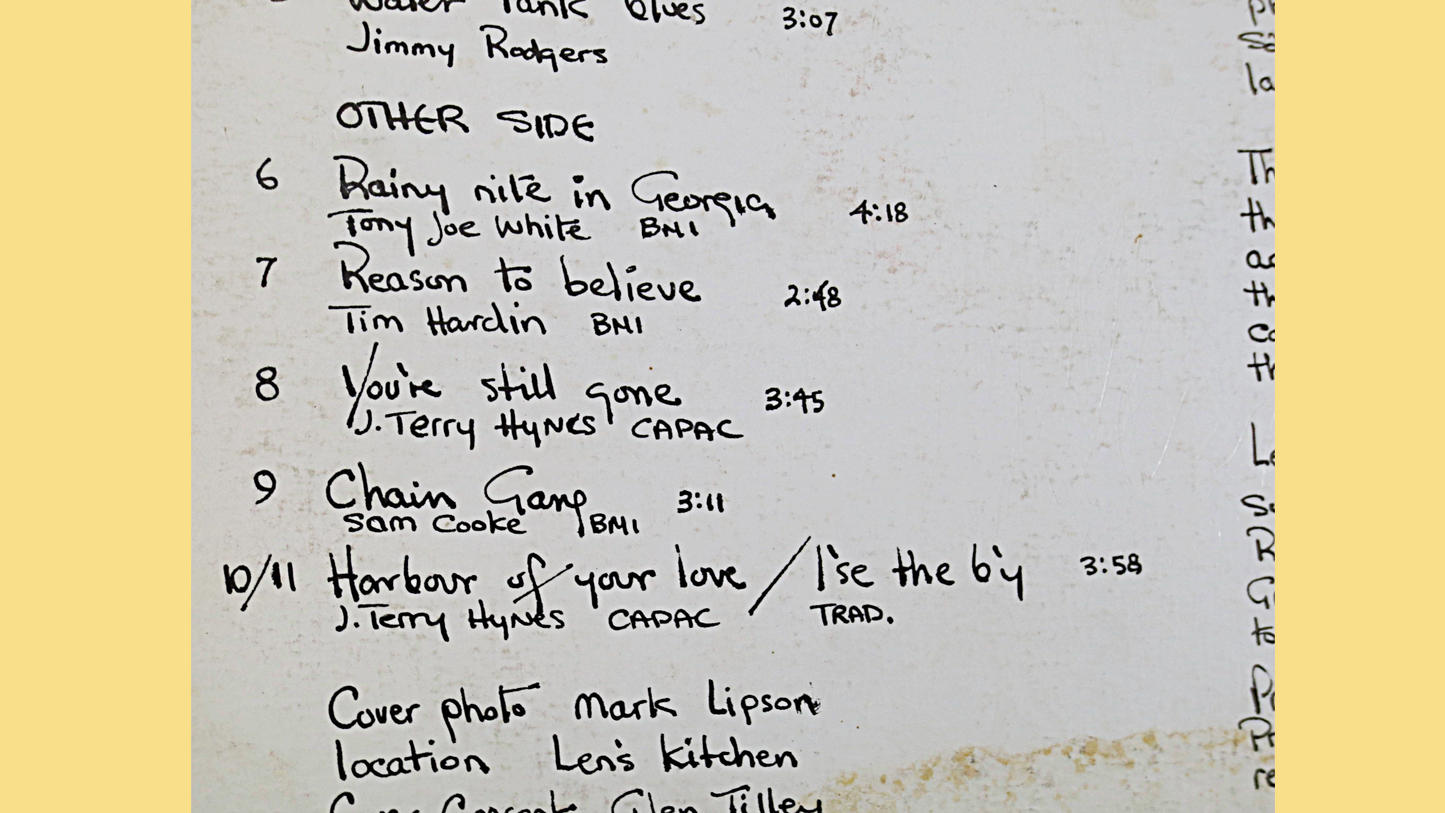 Water Tank Blues 3:07
Jimmy Rodgers
OTHER SIDE
6 Rainy nite in Georgia 4:18
Tony Joe White BMI
7 Reason to believe 2:48
Tim Hardin BMI
8 You're still gone 3:45
J. Terry HyNes CAPAC
9 Chain Gang 3:11
Sam Cooke BMI
10/11 Harbour of your love / I'se the b'y 3:58
J. Terry HyNes CAPAC TRAD.
Cover photo Mark Lipson
location Len's kitchen
Glen Tilley
Th
th
th
th
to
re